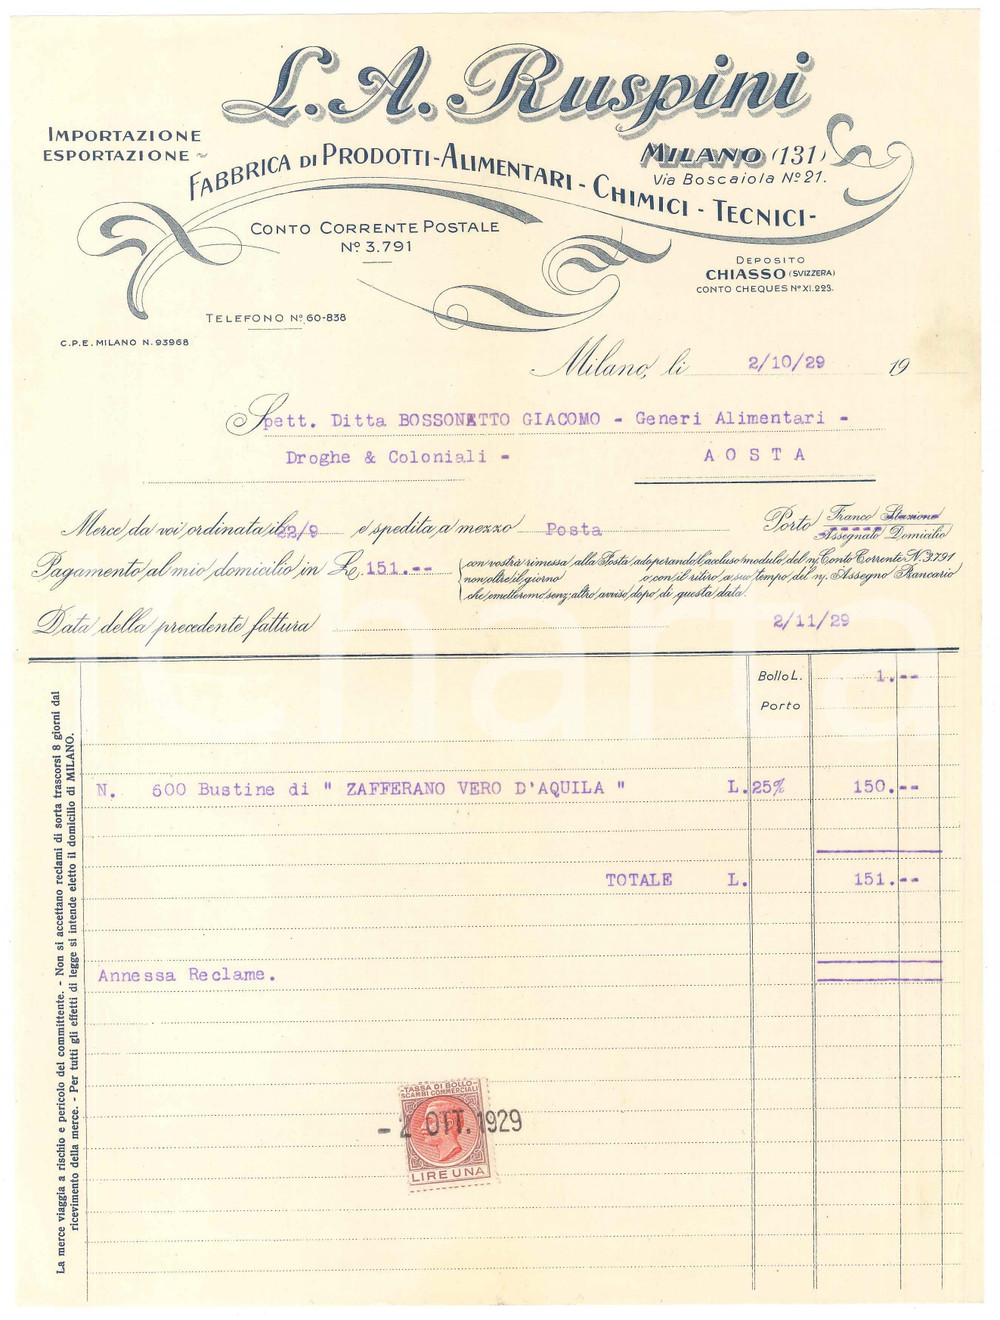 L. A. Ruspini
IMPORTAZIONE
ESPORTAZIONE
MILANO (131)
Via Boscaiola No 21.
FABBRICA DI PRODOTTI-ALIMENTARI - CHIMICI - TECNICI-
CONTO CORRENTE POSTALE
No 3.791
DEPOSITO
CHIASSO (SVIZZERA)
CONTO CHEQUES No XI.223.
TELEFONO No 60-838
C.P.E. MILANO N. 93968
Milano, li 2/10/29 19
Spett. Ditta BOSSONETTO GIACOMO - Generi Alimentari -
Droghe & Coloniali - AOSTA
Merce da voi ordinata il 22/9 e spedita a mezzo Posta Porto Franco Stazione
Assegnato Domicilio
Pagamento al mio domicilio in Le. 151.-- con vostra rimessa alla Posta adoperando l'accluso modulo del n/ Conto Corrente N. 3791
non oltre il giorno o con il ritiro a suo tempo del n/. Assegno Bancario
che emetteremo senz'altro avviso dopo di questa data.
Data della precedente fattura 2/11/29
Bollo L. 1.--
Porto
N. 600 Bustine di " ZAFFERANO VERO D'AQUILA " L. 25% 150.--
TOTALE L. 151.--
Annessa Reclame.
TASSA DI BOLLO
SCAMBI COMMERCIALI
- 2 OTT. 1929
LIRE UNA
La merce viaggia a rischio e pericolo del committente. - Non si accettano reclami di sorta trascorsi 8 giorni dal
ricevimento della merce. - Per tutti gli effetti di legge si intende eletto il domicilio di MILANO.